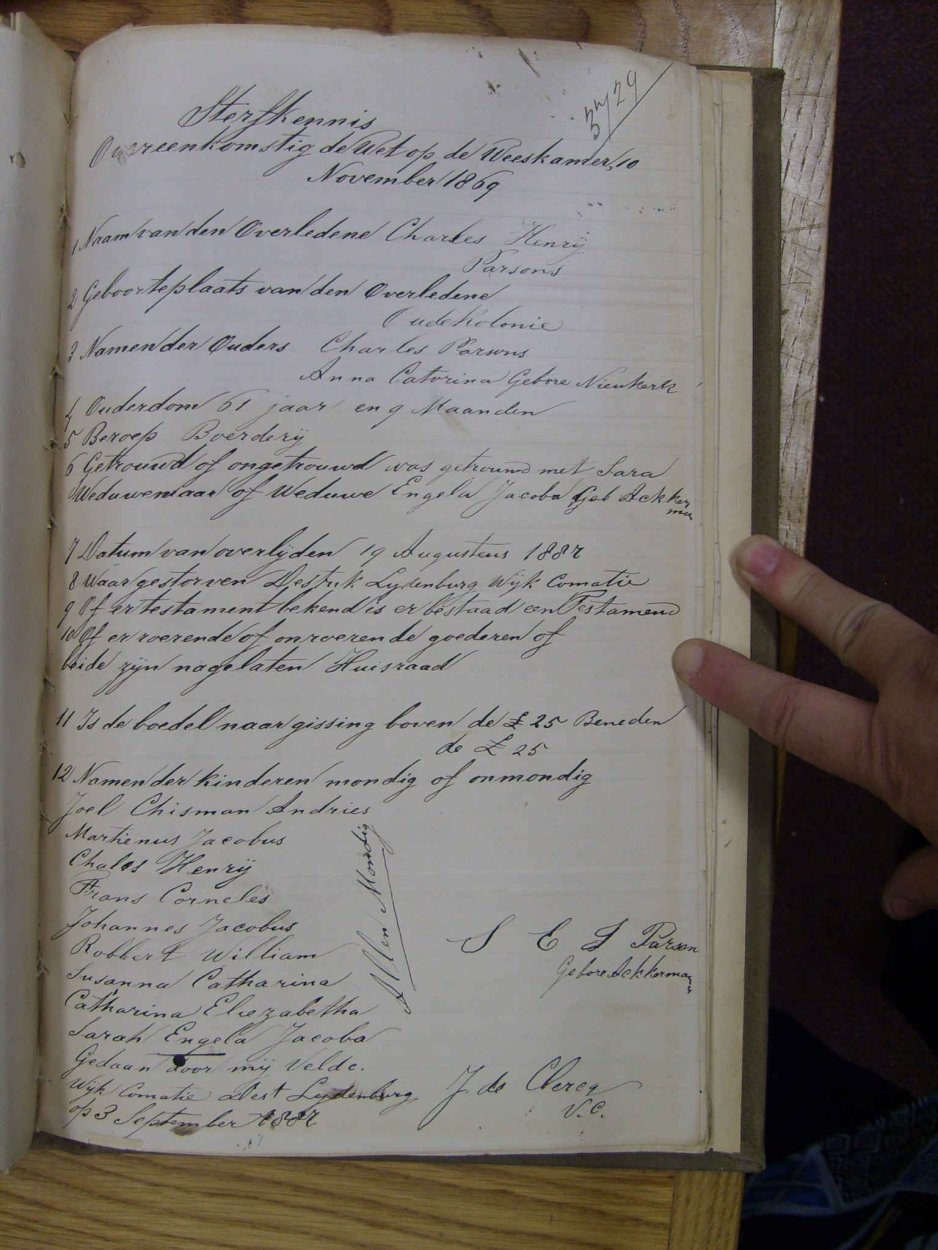 3729
Sterfkennis
Overeenkomstig de Wet op de Weeskamer, 10
November 1869
1 Naam van den Overledene Charles Henrij
Parsons
2 Geboorteplaats van den Overledene
Oude Kolonie
3 Namen der Ouders Charles Parsons
Anna Catorina Gebore Nieukerk
4 Ouderdom 61 jaar en 9 Maanden
5 Beroep Boerderij
6 Getrouwd of ongetrouwd was getrouwd met Sara
Weduwenaar of Weduwe Engela Jacoba Geb Ackker
man
7 Datum van overlijden 19 Augustus 1887
8 Waar gestorven Destrik Lydenburg Wijk Comatie
9 Of er testament bekend is er bestaad een Testamend
10 Of er roerende of onroerende goederen of
beide zyn nagelaten Huisraad
11 Is de boedel naar gissing boven de £ 25 Beneden
de £ 25
12 Namen der kinderen mondig of onmondig
Joel Chisman Andries
Martienus Jacobus
Chales Henrij
Frans Corneles
Johannes Jacobus
Robbert William
Susanna Catharina
Catharina Eliezabetha
Sarah Engela Jacoba
Allen Mondig
S E J Parson
Gebore Ackkerman
Gedaan door mij Velde.
Wijk Comatie Dest Lydenburg
op 3 September 1887
J. de Clercq
V.C.